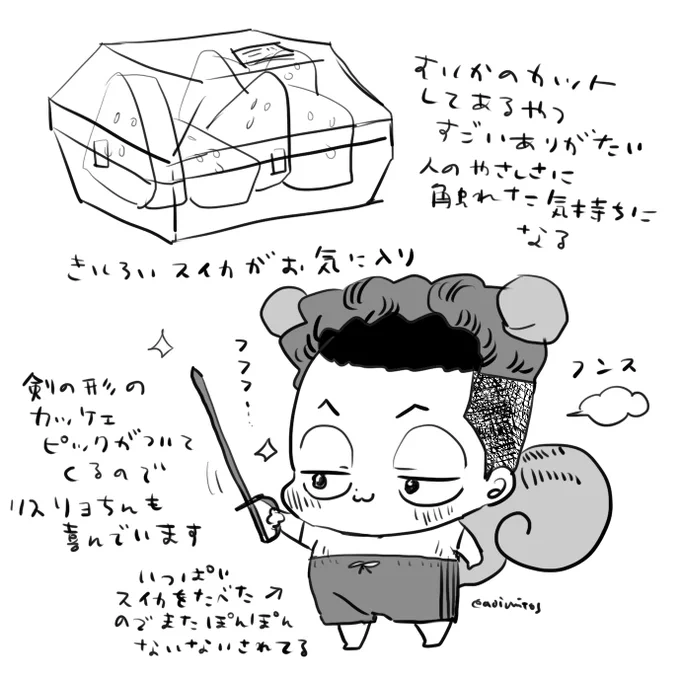 むいかのカット
してあるやつ
すごいありがたい
人のやさしさに
触れた気持ちに
なる
きいろいスイカがお気に入り
フフフ…
フンス
剣の形の
カッケェ
ピックがついて
くるので
リスリョちんも
喜んでいます
いっぱい
スイカをたべた
のでまたぽんぽん
ないないされてる
@aoimitos